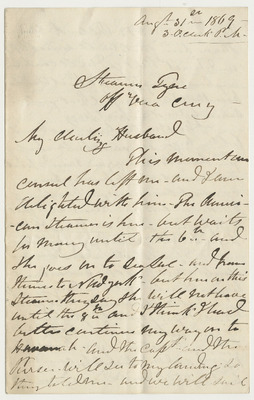 Augt. 31st 1869
3. O.Clock P.M.
Steamer Tyne
off Vera Cruz
My Darling Husband
This moment our
consul has left me - and I am
delighted with him - The Ameri-
- can Steamer is here - but waits
for money until the 6th - and
she goes on to Sisal - and from
thence to New york - but here on this
Steamer they say she will not leave
until the 8th and I think I had
better continue my way on to
Havanah - and the Capt. and the
Purser - will see to my landing so
they told me - and we will sail